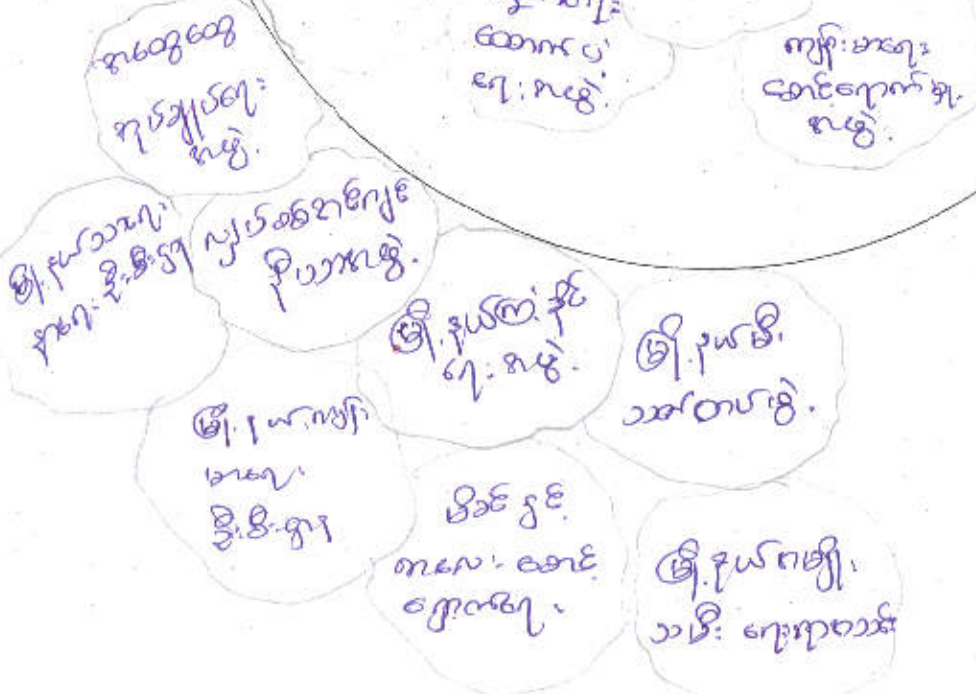 အထွေထွေ
အုပ်ချုပ်ရေး
အဖွဲ့.
ထောက်ပံ့
ရေးအဖွဲ့.
ကျန်းမာရေး
စောင့်ရောက်မှု
အဖွဲ့.
မြို့နယ်သာရေး
နာရေး ဦးစီးဌာန
လျှပ်စစ်
အဖွဲ့.
မြို့နယ်ကြံ့ခိုင်
ရေးအဖွဲ့.
မြို့နယ်မီး
သတ်တပ်ဖွဲ့.
မြို့နယ်ကျန်း
မာရေး
ဦးစီးဌာန
မိခင်နှင့်
ကလေး စောင့်
ရှောက်ရေး
မြို့နယ်အမျိုး
သမီးရေးရာ